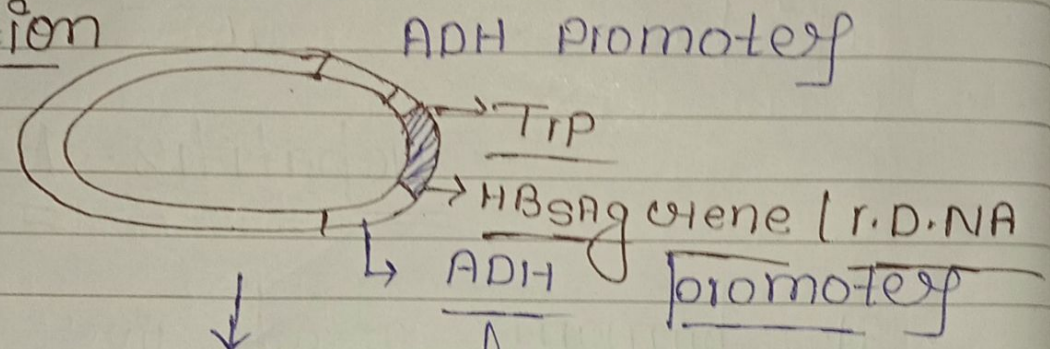 ion
ADH Promoter
TrP
HBsAg Gene / r.D.NA
ADH promoter